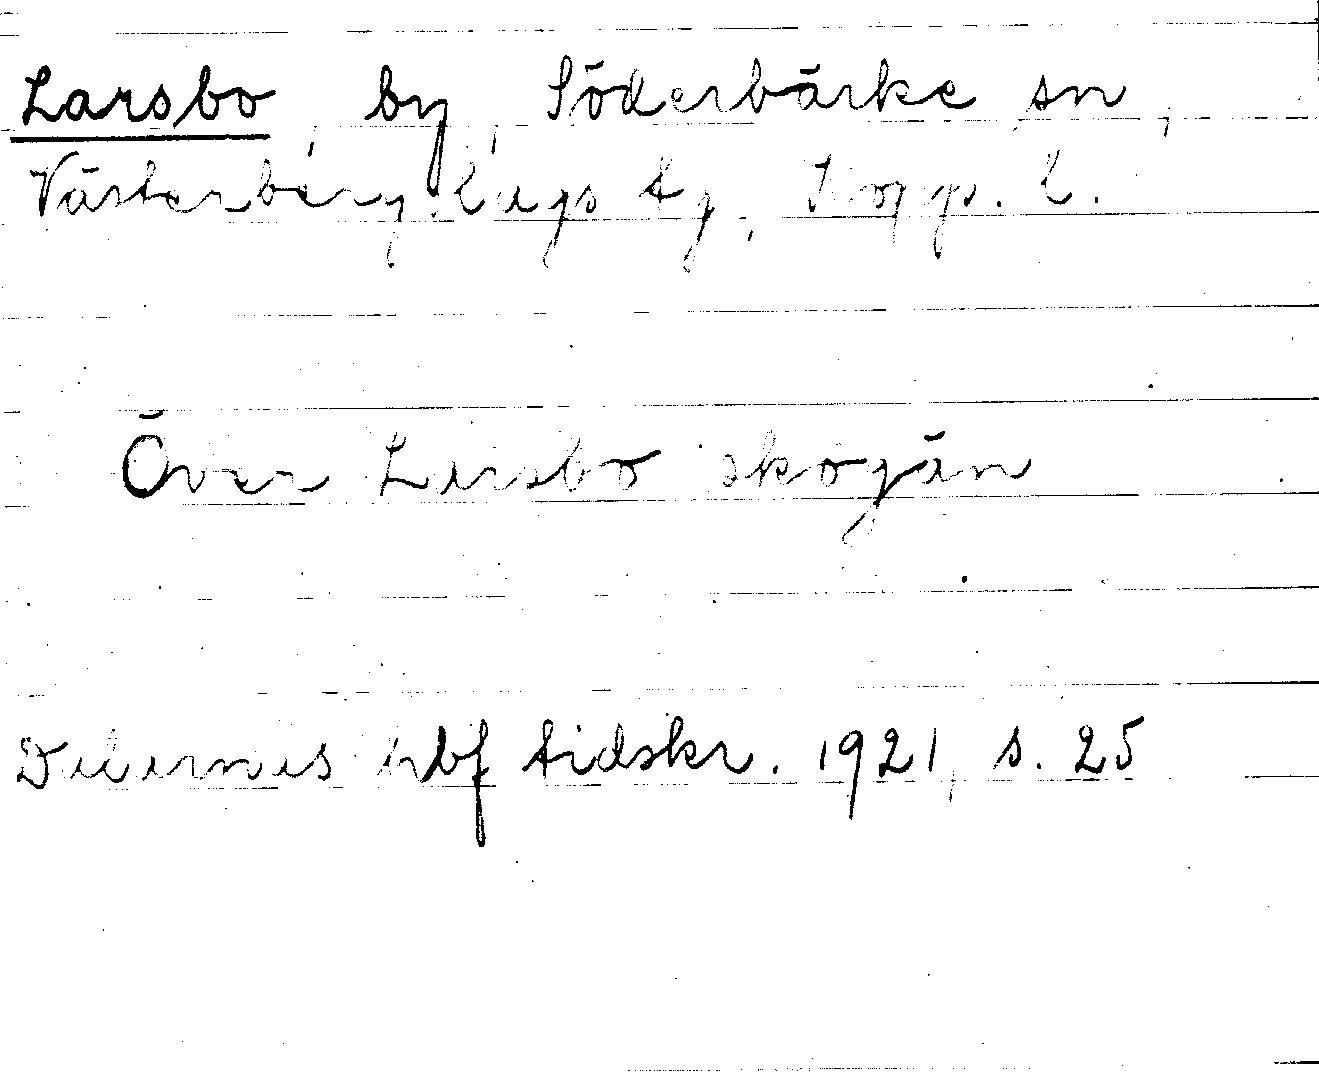 Larsbo, by, Söderbärke sn,
Västerbergslags tg, Kopp. l.
Över Larsbo skogän
Dalarnas hbf tidskr. 1921, s. 25